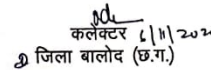 कलेक्टर 6/11/202
जिला बालोद (छ.ग.)